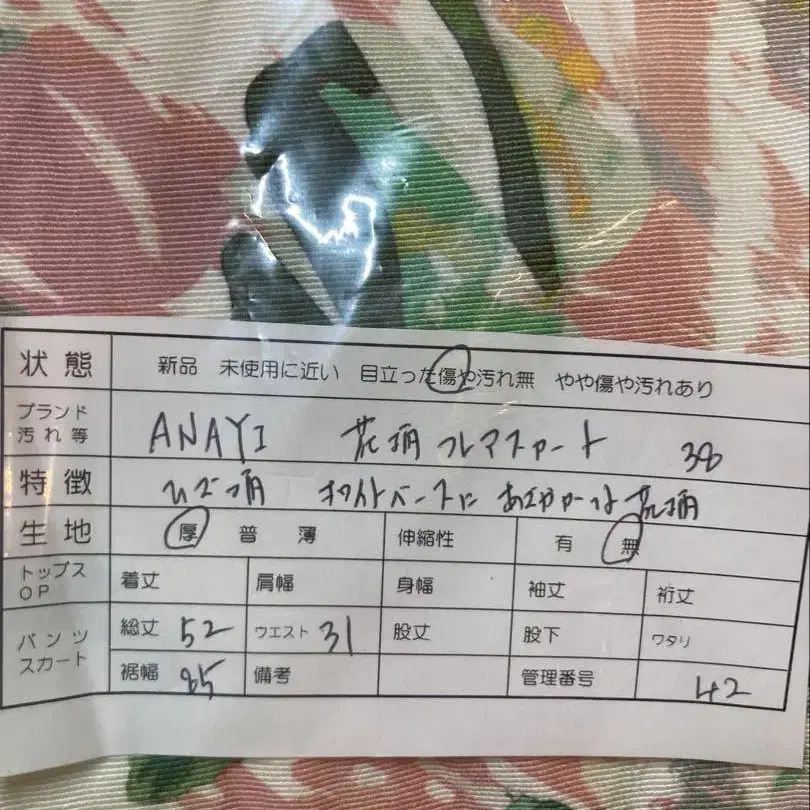 状態 新品 未使用に近い 目立った傷や汚れ無 やや傷や汚れあり
ブランド
汚れ等 ANAYI 花柄フレアスカート 38
特徴 ホワイトベースに あざやかな花柄
生地 厚 普 薄 伸縮性 有 無
トップス
OP 着丈 肩幅 身幅 袖丈 裄丈
パンツ
スカート 総丈 52 ウエスト 31 股丈 股下 ワタリ
裾幅 85 備考 管理番号 42